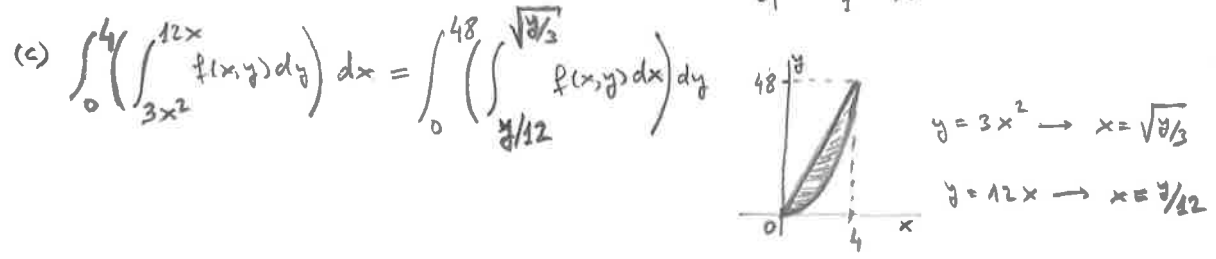 (c) ∫_0^4 ( ∫_{3x^2}^{12x} f(x,y) dy ) dx = ∫_0^{48} ( ∫_{y/12}^{√(y/3)} f(x,y) dx ) dy
48 y
y = 3x^2 → x = √(y/3)
y = 12x → x = y/12
0 4 x